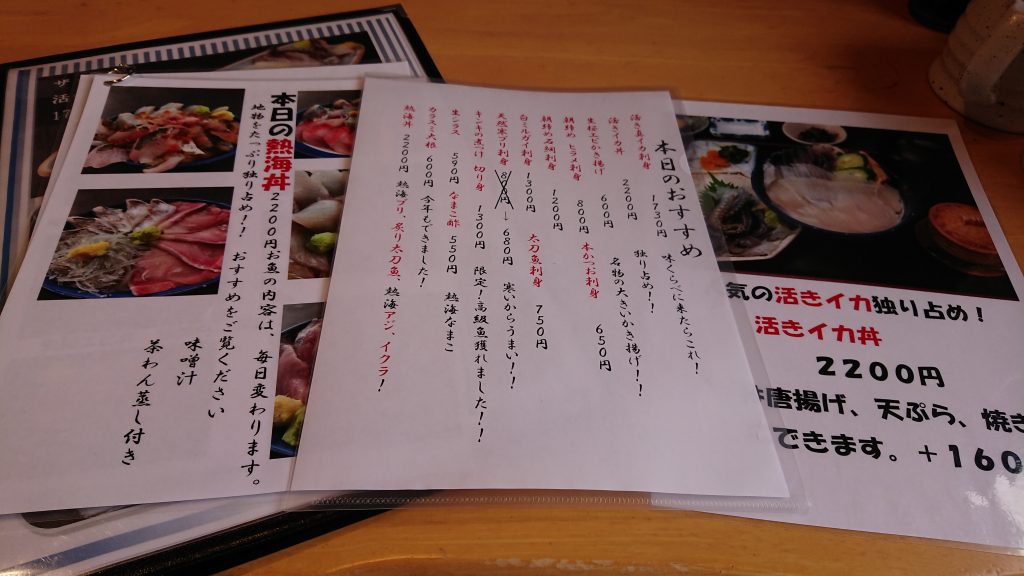 本日のおすすめ
活き真イカ刺身 1730円 味くらべに来たらこれ！
活きイカ丼 2200円 独り占め！！
生桜エビかき揚げ 600円 名物の大きいかき揚げ！！
朝締めヒラメ刺身 800円 本かつお刺身 650円
朝締め名鯛刺身 1200円
白ミルガイ刺身 1300円 太刀魚刺身 750円
天然寒ブリ刺身 → 680円 寒いからうまい！！
キンキの煮つけ 切り身 1300円 限定！高級魚獲れました！！
生シラス 590円 なまこ酢 550円 熱海なまこ
カラスミ大根 600円 今年もできました！
熱海丼 2200円 熱海ブリ、炙り太刀魚、熱海アジ、イクラ！
本日の熱海丼 2200円お魚の内容は、毎日変わります。
地物をたっぷり独り占め！！ おすすめをご覧ください
味噌汁
茶わん蒸し付き
気の活きイカ独り占め！
活きイカ丼
2200円
唐揚げ、天ぷら、焼き
できます。＋160
ザ
活
17